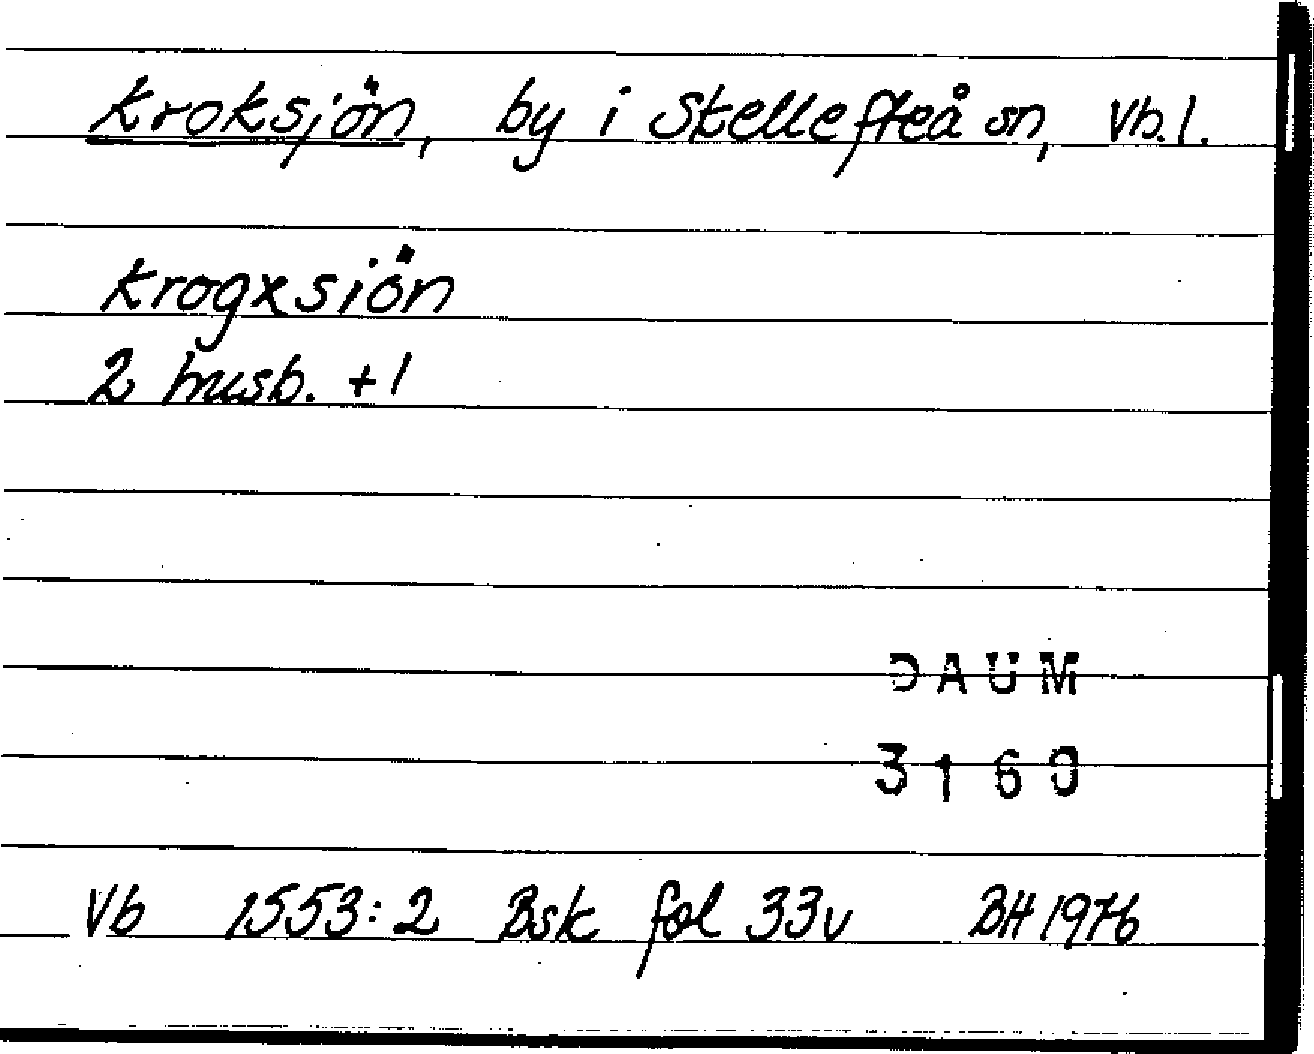 Kroksjön, by i Skellefteå sn, Vb. l.
Krogxsiön
2 husb. +1
DAUM
3169
Vb 1553:2 Bsk fol 33v BH 1976